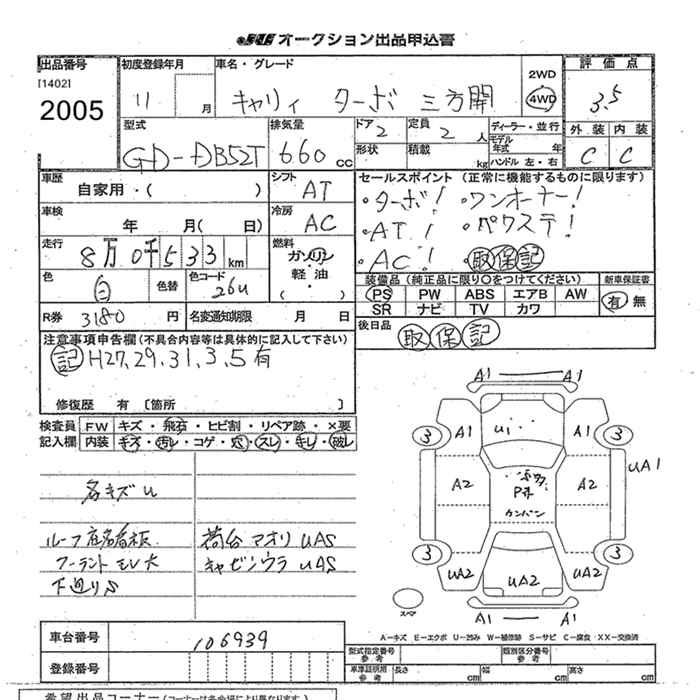 JU オークション出品申込書
出品番号 初度登録年月 車名・グレード 2WD 4WD 評価点
[1402]
2005 11 月 キャリィ ターボ 三方開 3.5
型式 排気量 ドア 定員 ディーラー・並行 外装 内装
GD-DB52T 660 cc 2 2 人 モデル年式 年 C C
形状 積載 kg ハンドル 左・右
車歴 自家用・( ) シフト AT セールスポイント (正常に機能するものに限ります)
・ターボ! ・ワンオーナー!
車検 年 月( 日) 冷房 AC ・AT! ・ペワステ!
走行 8万0千533km 燃料 ガソリン 軽油 ( ) ・AC! 取保記
色 白 色替 色コード 26U 装備品 (純正品に限り○をつけてください) 新車保証書
PS PW ABS エアB AW 有 無
SR ナビ TV カワ
R券 3180 円 名変通知期限 月 日 後日品 取 保 記
注意事項申告欄(不具合内容等は具体的に記入して下さい)
記 H27,29,31,3,5有
修復歴 有 〔箇所 〕
検査員 FW キズ・飛石・ヒビ割・リペア跡・×要
記入欄 内装 キズ・汚レ・コゲ・穴・スレ・キレ・破レ
各キズU
荷台 アオリ UAS
キャビンウラ UAS
下廻りS
A1 A1
3 A1 U1 A1 3
UA1
A2 A2
カンバン
3 3
UA2 UA2 UA2
スペア
A1 A1
A-キズ E-エクボ U-凹み W-補修跡 S-サビ C-腐食 XX-交換済
車台番号 106939
型式指定番号 参考 類別区分番号 参考
登録番号
車庫証明用 参考 長さ cm 幅 cm 高さ cm
希望出品コーナー(コーナーは各会場により異なります)